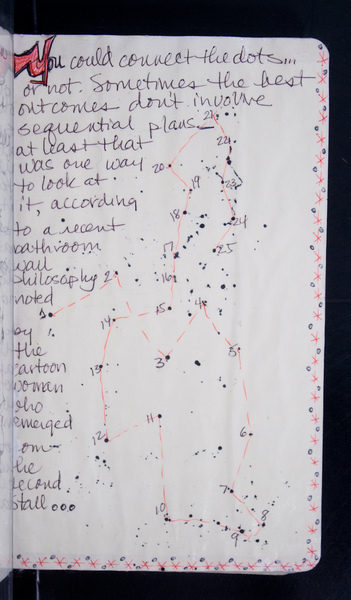 You could connect the dots...
or not. Sometimes the best
outcomes don't involve
sequential plans
at least that
was one way
to look at
it, according
to a recent
bathroom
wall
philosophy
noted
by
the
cartoon
woman
who
emerged
om
the
second
stall...
21
22
20
19
23
18
24
17
25
16
2
1
15
4
14
3
5
13
11
12
6
7
10
8
9